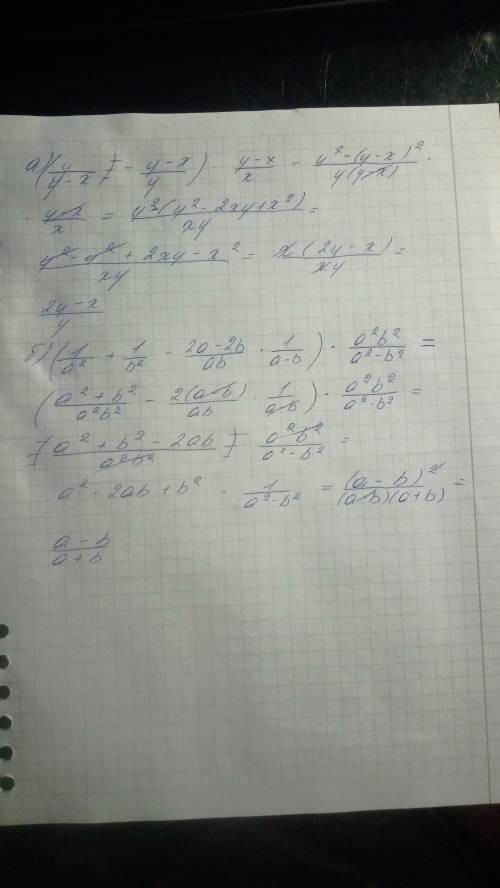 а) (y/(y-x) - (y-x)/y) · (y-x)/x = (y²-(y-x)²)/(y(y-x)) ·
· (y-x)/x = (y²-(y²-2xy+x²))/(xy) =
(y²-y²+2xy-x²)/(xy) = x(2y-x)/(xy) =
(2y-x)/y
б) (1/a² + 1/b² - (2a-2b)/(ab) · 1/(a-b)) · a²b²/(a²-b²) =
((a²+b²)/(a²b²) - 2(a-b)/(ab) · 1/(a-b)) · a²b²/(a²-b²) =
(a²+b²-2ab)/(a²b²) · a²b²/(a²-b²) =
a²-2ab+b² · 1/(a²-b²) = (a-b)²/((a-b)(a+b)) =
(a-b)/(a+b)